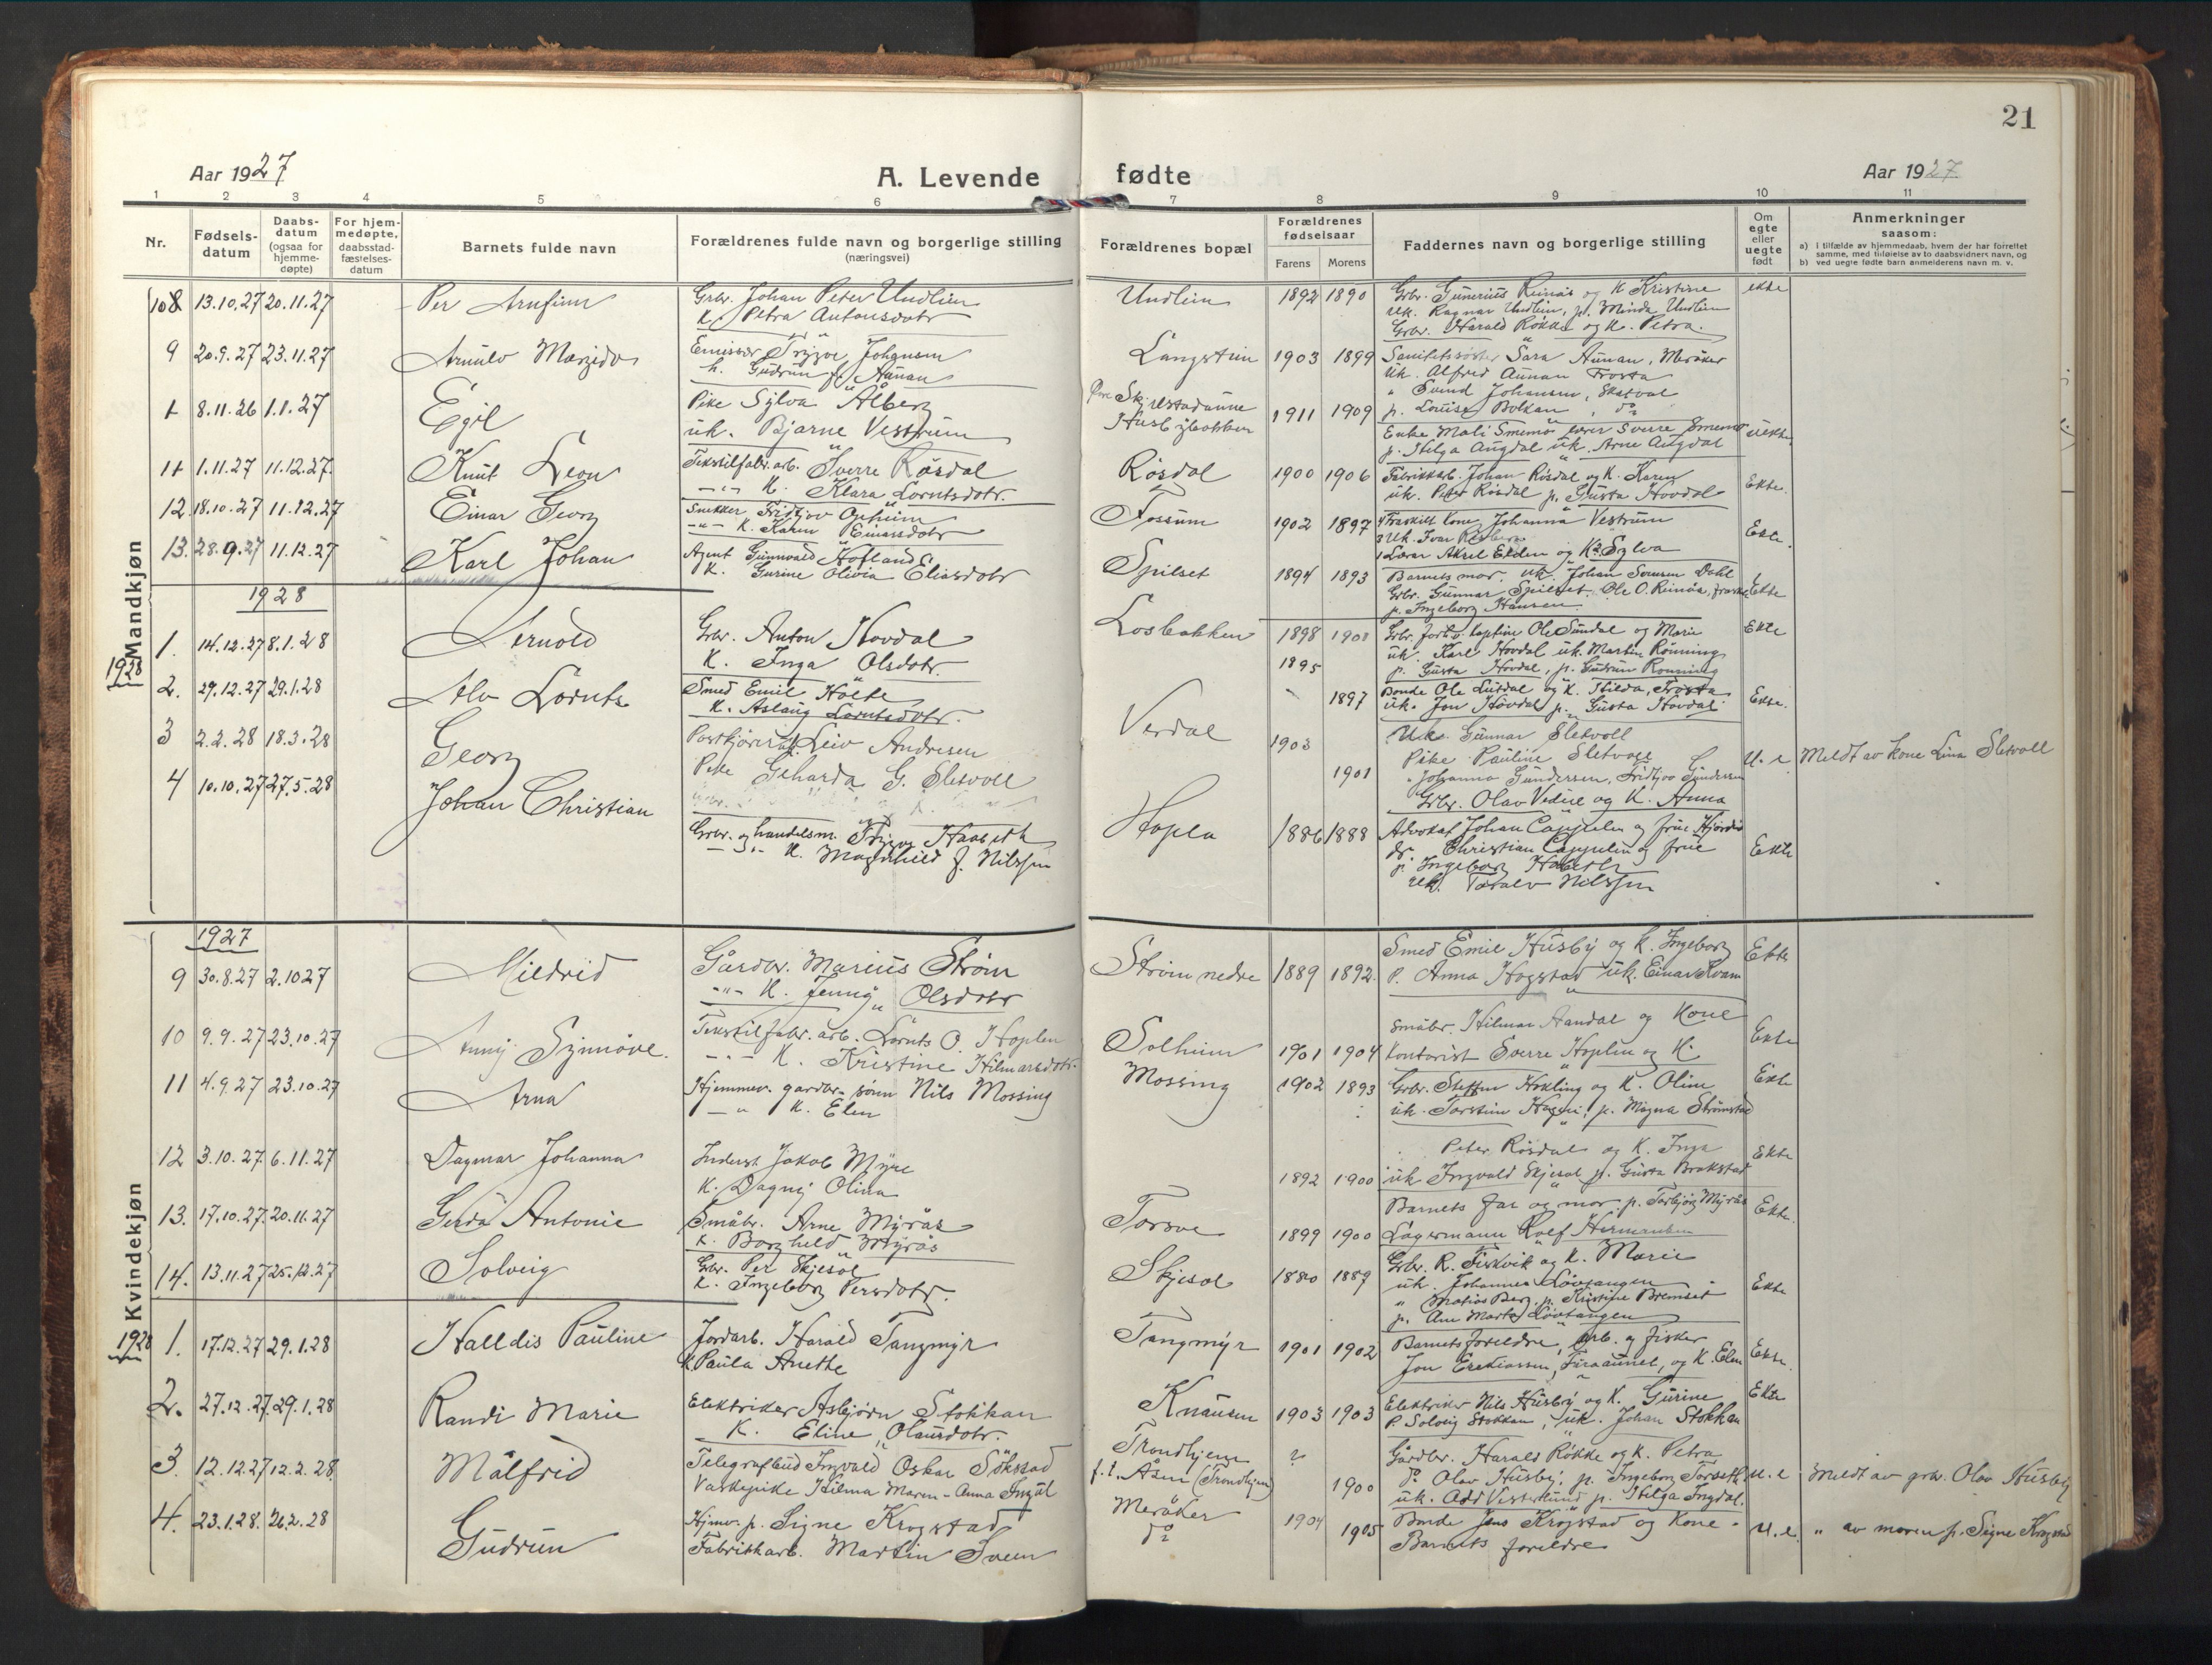 21
Aar 1927
A. Levende fødte
Aar 1927
1 2 3 4 5 6 7 8 9 10 11
Nr.
Fødsels-
datum
Daabs-
datum
(ogsaa for
hjemme-
døpte)
For hjem-
medøpte,
daabsstad-
fæstelses-
datum
Barnets fulde navn
Forældrenes fulde navn og borgerlige stilling
(næringsvei)
Forældrenes bopæl
Forældrenes
fødselsaar
Farens Morens
Faddernes navn og borgerlige stilling
Om
egte
eller
uegte
født
Anmerkninger
saasom:
a) i tilfælde av hjemmedaab, hvem der har forrettet
samme, med tilføielse av to daabsvidners navn, og
b) ved uegte fødte barn anmelderens navn m. v.
Mandkjøn
108 13.10.27 20.11.27 Per Arnfinn
Grbr. Johan Peter Undlien
K. Petra Antonsdotr
Undlien 1892 1890
Grbr. Gunerius Reinås og K Kristine
uk. Ragnar Undlien, p. Minda Undlien
Grbr. Harald Røkke og K. Petra.
ekte
9 20.9.27 23.11.27
Emissær Trygve Johansen
h. Gudrun f. Aunan
Langstein 1903 1899
Sanitetssøster Sara Aunan, Meråker
Uk. Alfred Aunan Frosta
" Svend Johansen, Skatval
p. Louise Bolkan, do
1 8.11.26 1.1.27 Egil
Pike Sylva Ålberg
uk. Bjarne Vestrum
1911 1909
Enke Mali Smemo Sverre Smemo
p. Helga Augdal uk. Arne Augdal
uekte.
11 1.11.27 11.12.27. Knut Leon
Tekstilfabr. arb. Sverre Røsdal
K. Klara Lorntsdotr.
Røsdal 1900 1906
Fabrikkarb. Johan Røsdal og K. Karen
uk. Peter Røsdal p. Gusta Hovdal
Ekte.
12 18.10.27 11.12.27 Einar Georg
Snekker Fridtjov Opheim
K. Karen Einarsdotr
Fossum 1902 1897
Fraskilt kone Johanna Vestrum
Uk. Ivar
Lærer Aksel Elden og Ka Sylva
Ekte.
13. 28.9.27 11.12.27 Karl Johan
Agent Gunnvald Hofland
K. Gurine Olivia Eliasdotr
Spilset 1894 1893
Barnets mor. uk. Johan Svensen Dahl
Grbr. Gunnar Spilset. Ole O. Reinås,
p. Ingeborg Hansen.
Ekte
1928
1928
1. 14.12.27 8.1.28 Arnold
Grbr. Anton Hovdal
K. Inga Olsdotr.
Losbakken 1898 1908
1895
Grbr. forh.v. Kaptein Ole Sundal og Marie
uk. Karl Hovdal uk. Martin Rønning
p. Gusta Hovdal, p. Gudrun Rønning
Ekte
2. 29.12.27 29.1.28 Alv Lornts
Smed Emil Holte
K. Aslaug Lorntsdotr.
1897
Bonde Ole Lutdal og K. Hilda, Frosta
uk. Jon Hovdal p. Gusta Hovdal
Ekte.
3 2.2.28 18.3.28 Georg
Leiv Andresen
Pike Geharda G. Sletvoll
Verdal 1903
1901
Uk. Gunnar Sletvoll
Pike Pauline Sletvoll
" Johanna Gundersen, Fridtjov Gundersen
Grbr. Olav Vedul og K. Anna
U. e. Meldt av kone Lina Sletvoll
4 10.10.27 27.5.28 Johan Christian
Grbr. og handelsm. Trygve Haabeth
K. Magnhild f. Nilssen
Hopla 1886 1888
Advokat Johan Cappelen og frue Hjørdis
dr. Christian Cappelen og frue
p. Ingeborg Habeth
uk. Nilssen
Ekte
Kvindekjøn
1927
9 30.8.27 2.10 27 Mildrid
Gårdbr. Marius Strøm
-"- K. Jenny Olsdotr
Strøm nedre 1889 1892.
Smed Emil Husby og K. Ingeborg
P. Anna Hogstad uk. Einar Kvam
Ekte
10 9.9.27 23.10.27 Anny Synnøve.
Tekstilfabr. arb. Lornts O. Hoplen
-"- K. Kristine Hilmarsdotr.
Solheim 1901 1904
Småbr. Hilmar Aandal og Kone
Kontorist Sverre Hoplen og K.
Ekte
11 4.9.27 23.10.27 Arna
Hjemmev. gardbr. sønn Nils Mossing
-"- K. Elen
Mossing 1902 1893
Grbr. Steffen Hokling og K. Oline
uk. Torstein Hagen, p. Magna Strømstad
Ekte
12 3.10.27 6.11.27 Dagmar Johanna
Inderst Jakob Myhre
K. Dagny Olina
1892 1900
Peter Røsdal og K. Inga
uk Ingvald Skjesol p. Gusta Brakstad
Ekte
13. 17.10.27. 20.11.27 Gerda Antonie
Småbr. Arne Myrås
K. Borghild Myrås
Torsve 1899 1900
Barnets far og mor. p. Torbjørg Myrås
Lagermann Rolf Hermansen
Ekte.
14. 13.11.27 25.12.27 Solveig
Grbr. Per Skjesol
K. Ingeborg Persdotr.
Skjesol 1880 1889
Grbr. R. Fiskvik og K. Marie
uk. Johannes Løvtangen
" Matias Berg. p. Kristine Bremset
p. Ane Marta Løvtangen
Ekte
1928
1. 17.12.27 29.1.28 Halldis Pauline
Jordarb. Harald Tangmyr
K. Paula Anethe
Tangmyr 1901 1902
Barnets foreldre, arb. og fisker
Jon Erikiassen, Finaunet, og K. Elen
Ekte.
2. 27.12.27. 29.1.28 Randi Marie
Elektriker Asbjørn Stokkan
K. Eline Olausdotr.
Knausen 1903 1903
Elektriker Nils Husby og K. Gurine
P. Solveig Stokkan, uk. Johan Stokkan
Ekte
3. 12.12.27 12.2.28. Målfrid
Telegrafbud Ingvald Oskar Søkstad
Vaskepike Hilma Maren-Anna Ingdal
Trondhjem ?
f. t. Åsen (Trondhjem) 1900
Gårdbr. Harald Røkke og K. Petra
Do Olav Husby, p. Ingeborg Torseth
uk. Odd Vesterlund p. Helga Ingdal.
u. e Meldt av grbr. Olav Husby
4. 23.1.28. 26.2.28 Gudrun
Hjmv. p. Signe Krogstad
Fabrikkarb. Martin Sveen
Meråker 1904
do 1905
Bonde Jens Krogstad og Kone.
Barnets foreldre
U. e. " av moren p. Signe Krogstad